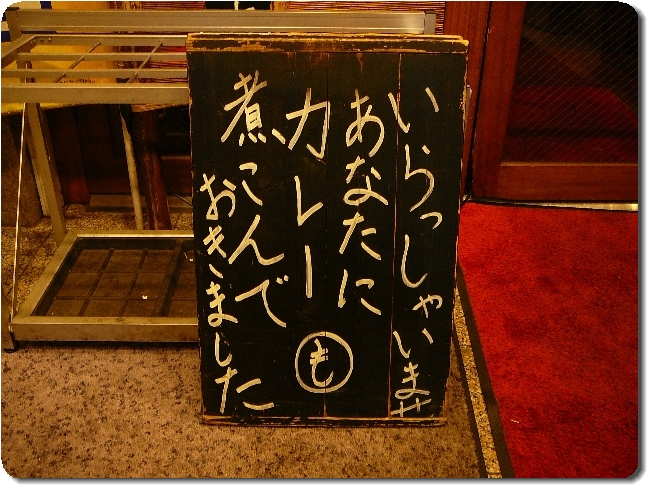 いらっしゃいませ
あなたに
カレーも
煮こんで
おきました